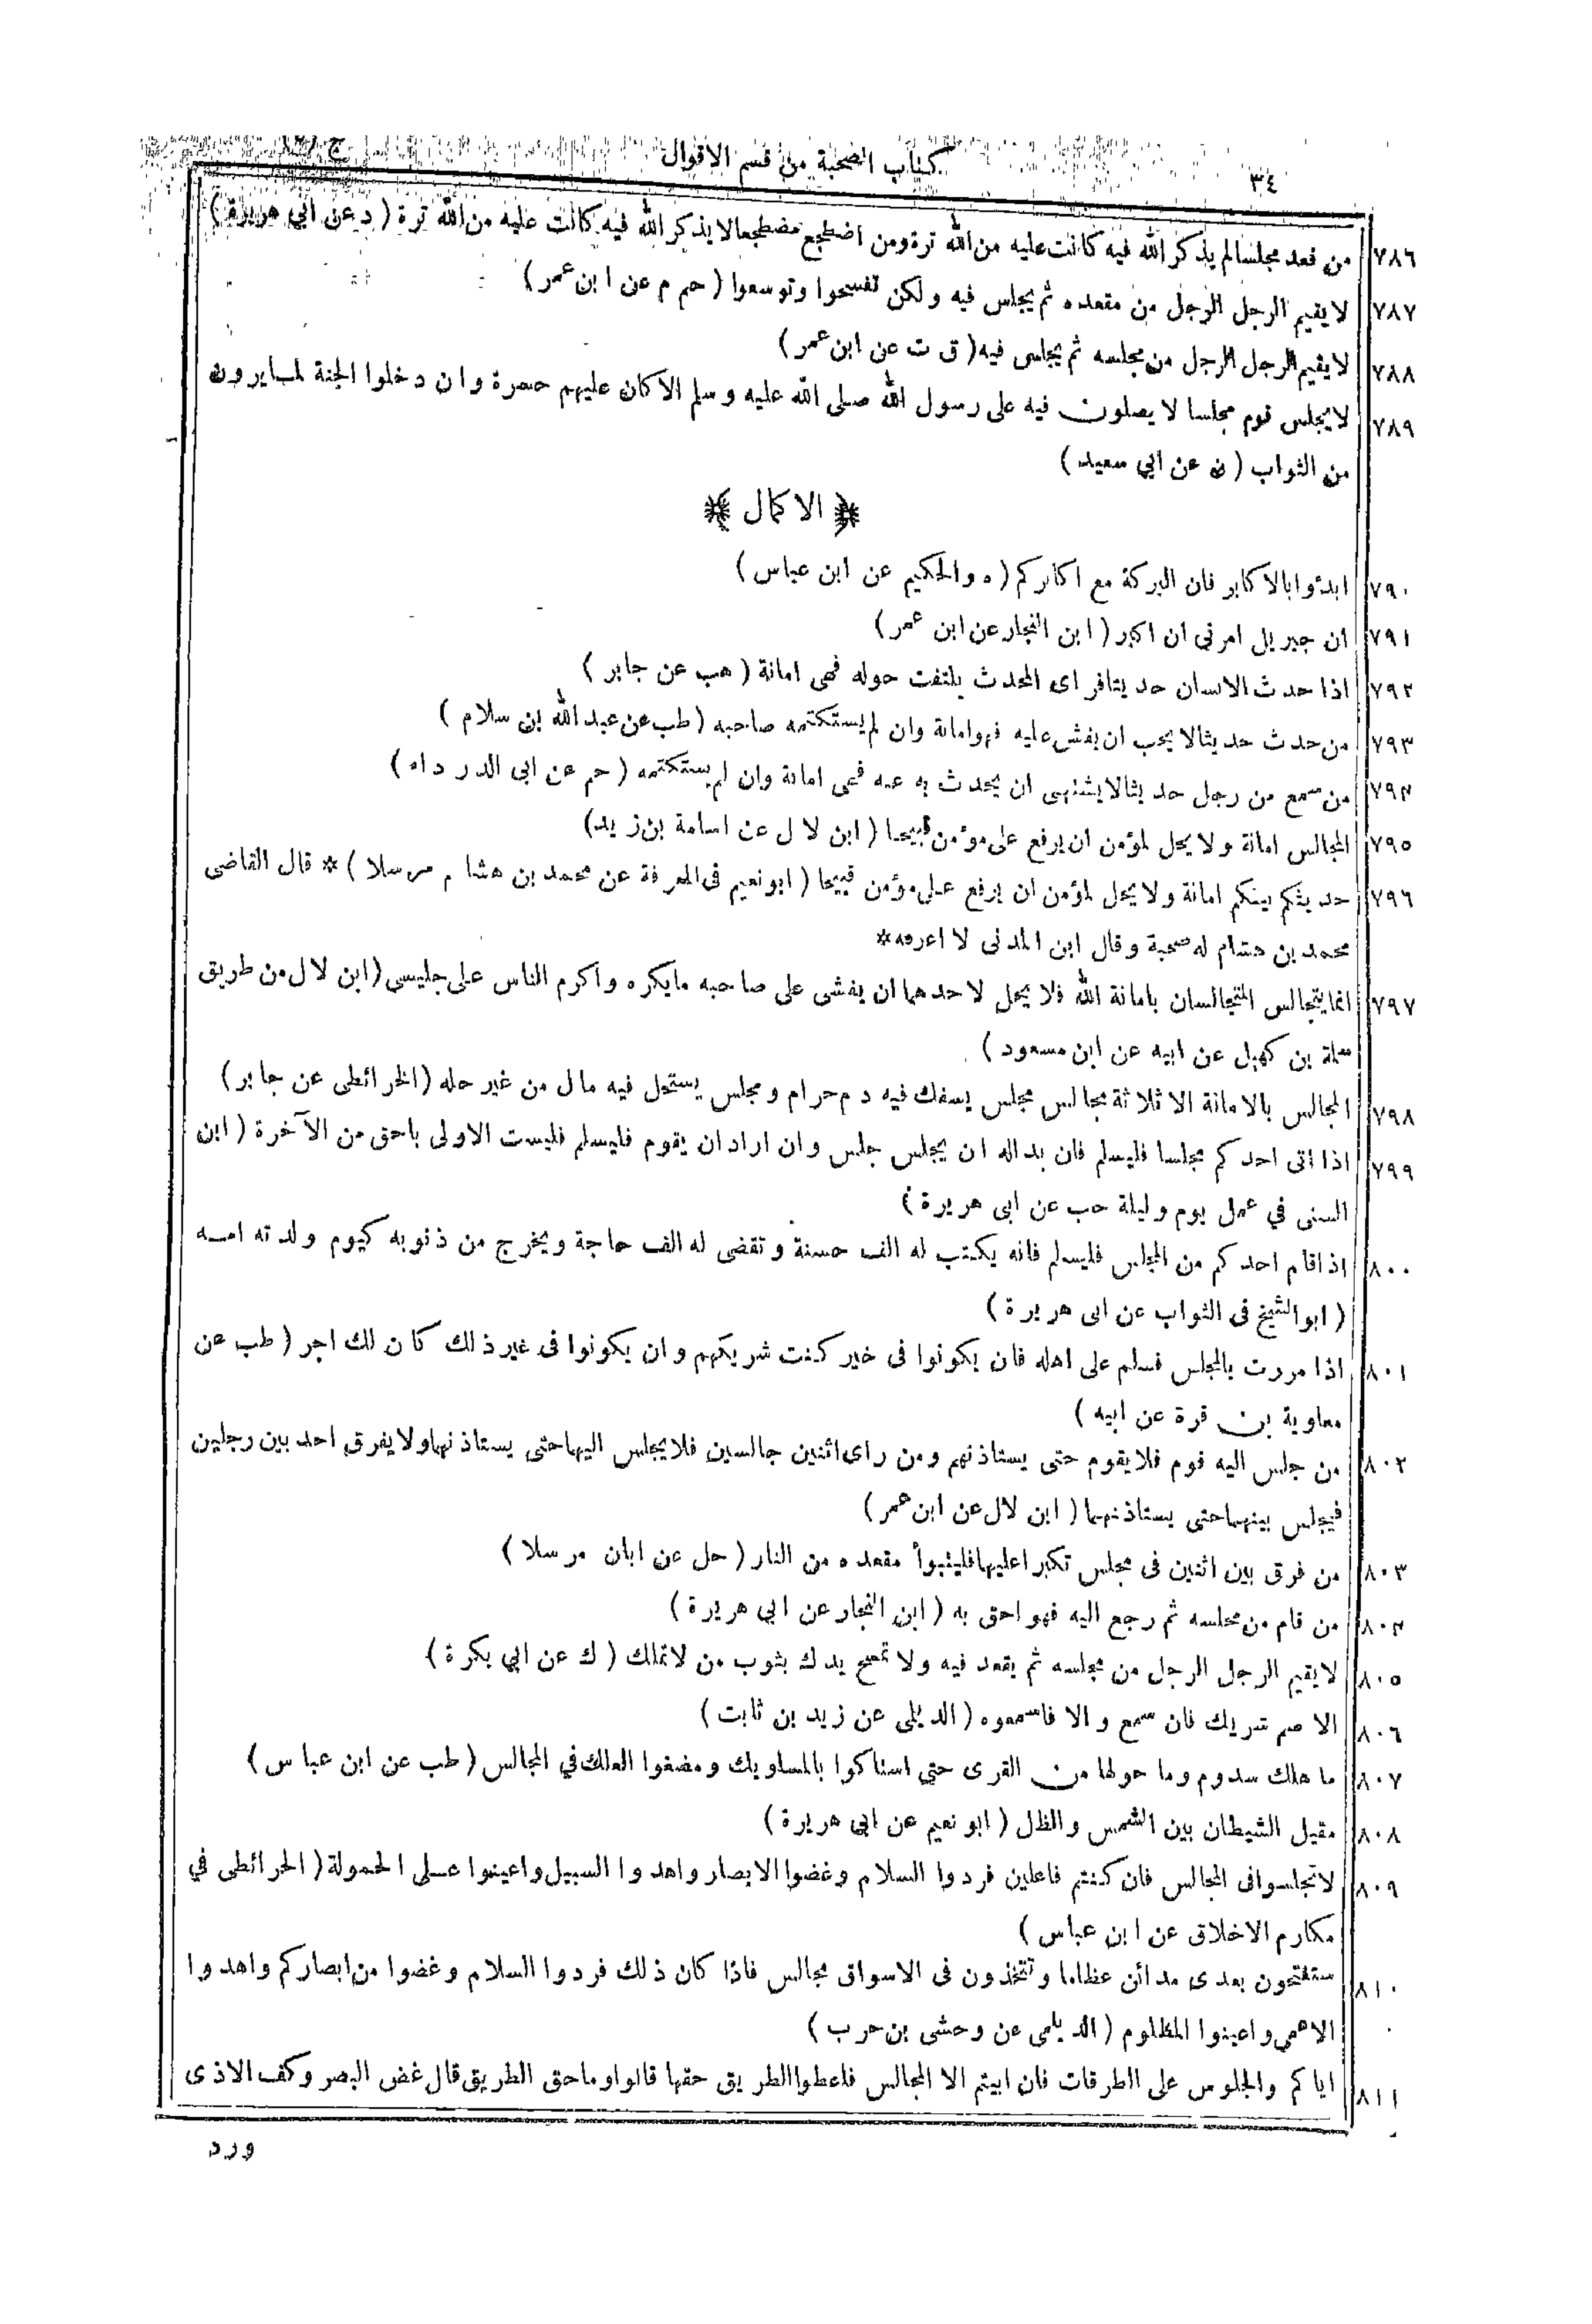 ٣٤ كتاب الصحبة من قسم الاقوال ج
٧٨٦ من قعد مجلسا لم يذكر الله فيه كانت عليه من الله ترة ومن اضطجع مضطجعا لا يذكر الله فيه كانت عليه من الله ترة ( د عن ابي هريرة )
٧٨٧ لا يقيم الرجل الرجل من مقعده ثم يجلس فيه ولكن تفسحوا وتوسعوا ( حم م عن ابن عمر )
٧٨٨ لا يقيم الرجل الرجل من مجلسه ثم يجلس فيه ( ق ت عن ابن عمر )
٧٨٩ لا يجلس قوم مجلسا لا يصلون فيه على رسول الله صلى الله عليه وسلم الا كان عليهم حسرة وان دخلوا الجنة لما يرون
من الثواب ( ن عن ابي سعيد )
﴿ الاكمال ﴾
٧٩٠ ابدئوا بالاكابر فان البركة مع اكابركم ( ه والحكيم عن ابن عباس )
٧٩١ ان جبريل امرني ان اكبر ( ابن النجار عن ابن عمر )
٧٩٢ اذا حدث الانسان حديثا فراى المحدث يلتفت حوله فهى امانة ( هب عن جابر )
٧٩٣ من حدث حديثا لا يحب ان يفشى عليه فهو امانة وان لم يستكتمه صاحبه ( طب عن عبد الله بن سلام )
٧٩٤ من سمع من رجل حديثا لا يشتهى ان يحدث به عنه فهى امانة وان لم يستكتمه ( حم عن ابى الدرداء )
٧٩٥ المجالس امانة ولا يحل لمؤمن ان يرفع على مؤمن قبيحا ( ابن لال عن اسامة بن زيد )
٧٩٦ حديثكم بينكم امانة ولا يحل لمؤمن ان يرفع على مؤمن قبيحا ( ابو نعيم فى المعرفة عن محمد بن هشام مرسلا ) * قال القاضى
محمد بن هشام له صحبة وقال ابن المدنى لا اعرفه *
٧٩٧ انما يتجالس المتجالسان بامانة الله فلا يحل لاحدهما ان يفشى على صاحبه ما يكره واكرم الناس على جليسى ( ابن لال من طريق
سلمة بن كهيل عن ابيه عن ابن مسعود )
٧٩٨ المجالس بالامانة الا ثلاثة مجالس مجلس يسفك فيه دم حرام ومجلس يستحل فيه مال من غير حله ( الخرائطى عن جابر )
٧٩٩ اذا اتى احدكم مجلسا فليسلم فان بداله ان يجلس جلس وان اراد ان يقوم فليسلم فليست الاولى باحق من الآخرة ( ابن
السنى في عمل يوم وليلة حب عن ابى هريرة )
٨٠٠ اذا قام احدكم من المجلس فليسلم فانه يكتب له الف حسنة وتقضى له الف حاجة ويخرج من ذنوبه كيوم ولدته امه
( ابو الشيخ فى الثواب عن ابى هريرة )
٨٠١ اذا مررت بالمجلس فسلم على اهله فان يكونوا فى خير كنت شريكهم وان يكونوا فى غير ذلك كان لك اجر ( طب عن
معاوية بن قرة عن ابيه )
٨٠٢ من جلس اليه قوم فلا يقوم حتى يستاذنهم ومن راى اثنين جالسين فلا يجلس اليهما حتى يستاذنهما ولا يفرق احد بين رجلين
فيجلس بينهما حتى يستاذنهما ( ابن لال عن ابن عمر )
٨٠٣ من فرق بين اثنين فى مجلس تكبرا عليهما فليتبوأ مقعده من النار ( حل عن ابان مرسلا )
٨٠٤ من قام من مجلسه ثم رجع اليه فهو احق به ( ابن النجار عن ابي هريرة )
٨٠٥ لا يقيم الرجل الرجل من مجلسه ثم يقعد فيه ولا تمسح يدك بثوب من لا تملك ( ك عن ابي بكرة )
٨٠٦ الاصم شريك فان سمع والا فاسمعوه ( الديلى عن زيد بن ثابت )
٨٠٧ ما هلك سدوم وما حولها من القرى حتى استاكوا بالمساويك ومضغوا العلك في المجالس ( طب عن ابن عباس )
٨٠٨ مقيل الشيطان بين الشمس والظل ( ابو نعيم عن ابى هريرة )
٨٠٩ لا تجلسوا فى المجالس فان كنتم فاعلين فردوا السلام وغضوا الابصار واهدوا السبيل واعينوا على الحمولة ( الخرائطى في
مكارم الاخلاق عن ابن عباس )
٨١٠ ستفتحون بعدى مدائن عظاما وتتخذون فى الاسواق مجالس فاذا كان ذلك فردوا السلام وغضوا من ابصاركم واهدوا
الاعمى واعينوا المظلوم ( الديلمى عن وحشى بن حرب )
٨١١ اياكم والجلوس على الطرقات فان ابيتم الا المجالس فاعطوا الطريق حقها قالوا وما حق الطريق قال غض البصر وكف الاذى
ورد